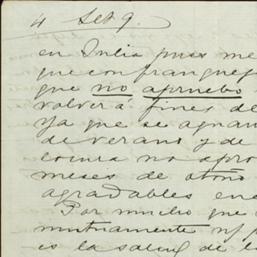 4 Set 9.
en Julia pues me
que con franquez
que no apruebo
volver á fines de
ya que se aguan
de verano y de
locura no apro
meses de otoño
agradables en
Por mucho que
mutuamente
is la salud de l